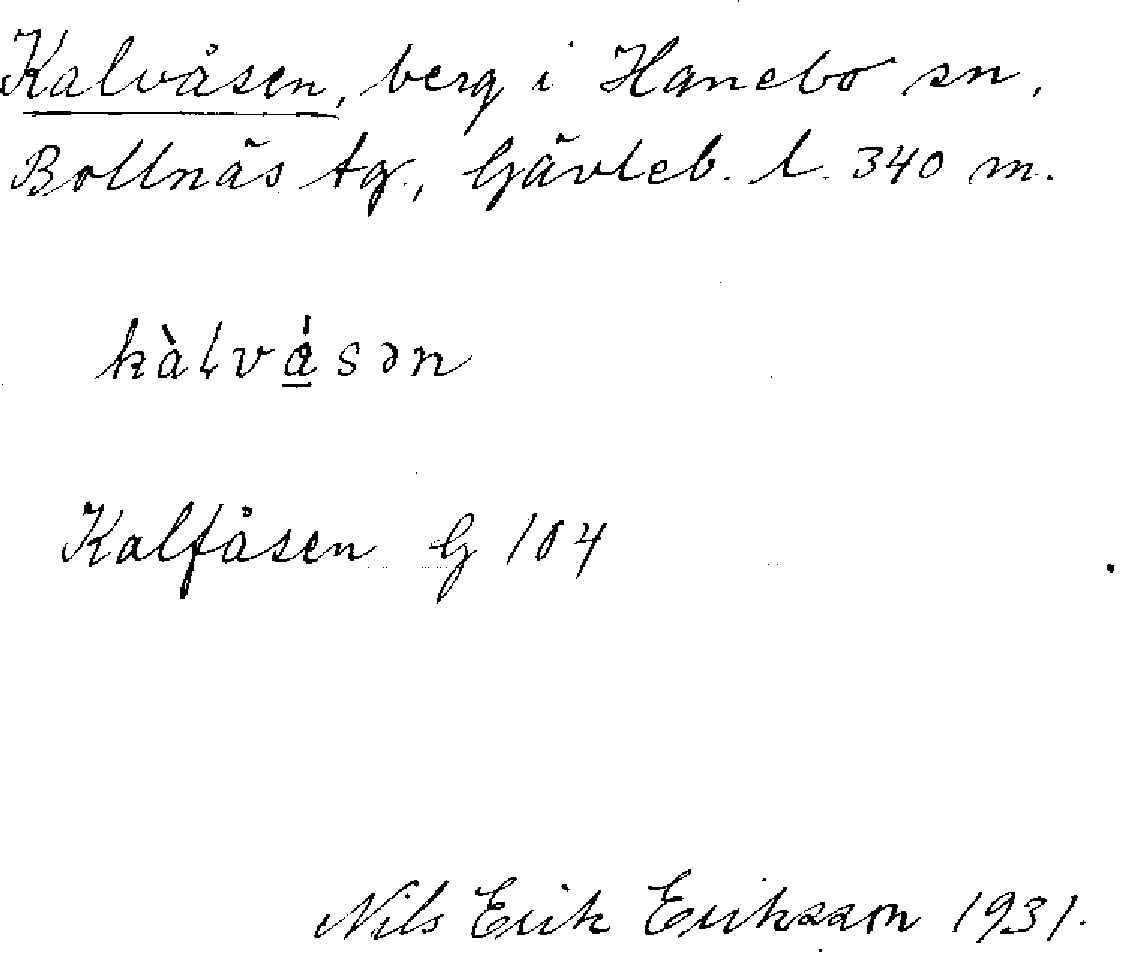 Kalvåsen, berg i Hanebo sn,
Bollnäs tg., Gävleb. l. 340 m.
kàlvá̱sən
Kalfåsen G 104
Nils Erik Eriksson 1931.